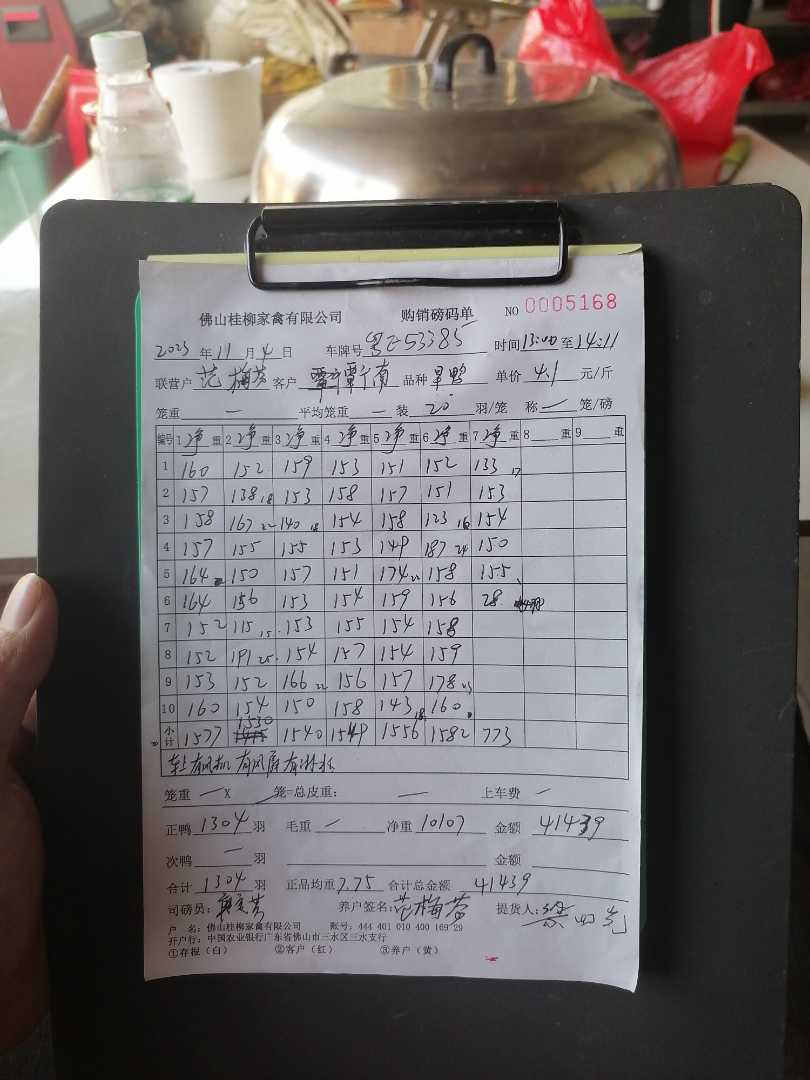 佛山桂柳家禽有限公司 购销磅码单 NO 0005168
2023 年 11 月 4 日 车牌号 粤E53385 时间 13:00 至 14:11
联营户 范梅芬 客户 南 品种 旱鸭 单价 4.1 元/斤
笼重 — 平均笼重 — 装 20 羽/笼 称 — 笼/磅
编号 1 净 重 2 净 重 3 净 重 4 净 重 5 净 重 6 净 重 7 净 重 8 重 9 重
1 160 152 159 153 151 152 133 17
2 157 138 18 153 158 157 151 153
3 158 167 22 140 18 154 158 123 16 154
4 157 155 155 153 149 187 24 150
5 164 150 157 151 174 22 158 155
6 164 156 153 154 159 156 28
7 152 115 15 153 155 154 158
8 152 191 25 154 157 154 159
9 153 152 166 22 156 157 178 23
10 160 154 150 158 143 18 160
小计 1577 1530 1540 1549 1556 1582 773
车上有风机 有风扇 有淋水
笼重 — X 笼=总皮重: — 上车费 —
正鸭 1304 羽 毛重 — 净重 10107 金额 41439
次鸭 — 羽 金额
合计 1304 羽 正品均重 7.75 合计总金额 41439
司磅员: 养户签名: 范梅芬 提货人:
户 名: 佛山桂柳家禽有限公司 账号: 444 401 010 400 169 29
开户行: 中国农业银行广东省佛山市三水区三水支行
①存根（白） ②客户（红） ③养户（黄）